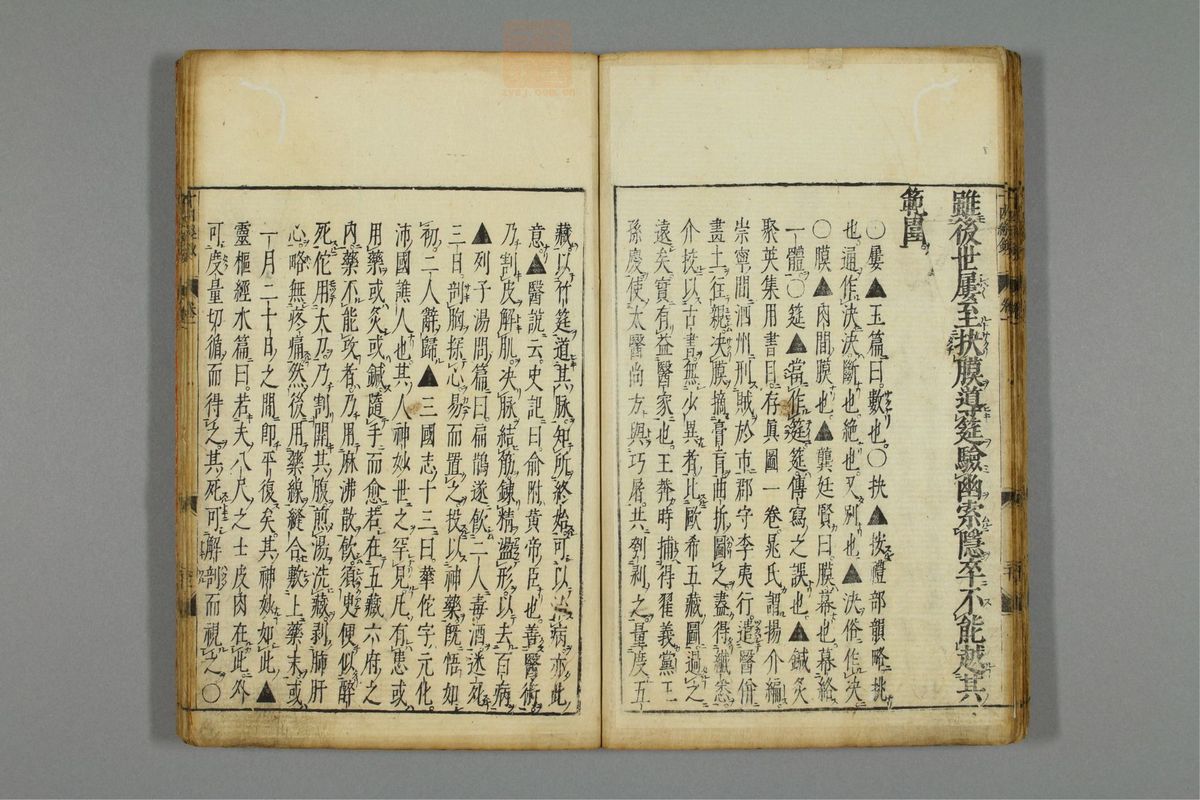 雖後世屢至抉膜道筳驗幽索隱卒不能越其
範圍
○屢▲玉篇曰數也○抉▲按禮部韻略挑
也通作決決斷也絶也又別也▲決俗作决
○膜▲肉間膜也▲龔廷賢曰膜幕也幕絡
一體○筳▲當作筵筳傳寫之誤也▲鍼灸
聚英集用書目存眞圖一卷晁氏謂揚介編
崇寧間泗州刑賊於市郡守李夷行遣醫併
畫工往親决膜摘膏肓曲折圖之盡得纖悉
介挍以古書無少異者比歐希五藏圖過之
遠矣實有益醫家也王莽時捕得翟義黨王
孫慶使太醫尚方與巧屠共刳剥之量度五
藏以竹筳道其脉知所終始可以病亦此
意▲醫說云史記曰俞附黃帝臣也善醫術
乃割皮解肌决脉結筋錬精盪形以去百病
▲列子湯問篇曰扁鵲遂飲二人毒酒迷死
三日剖胸探心易而置之投以神藥旣悟如
初二人辭歸▲三國志十三曰華佗字元化
沛國譙人也其人神妙世之罕見凡有患或
用藥或灸或鍼隨手而愈若在五藏六府之
内藥不能攻者乃用麻沸散飲須臾便似醉
死佗用太刀乃割開其腹煎湯洗藏剥肺肝
心略無疼痛然後用藥線縫合數上藥末或
一月二十日之間卽平復矣其神妙如此▲
靈樞經水篇曰若夫八尺之士皮肉在此外
可度量切循而得之其死可解剖而視之○